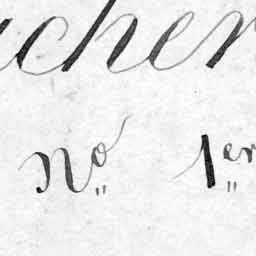 cher
Nº 1er